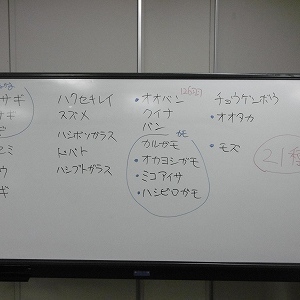 サギ
サギ
ハクセキレイ
スズメ
ハシボソガラス
ドバト
ハシブトガラス
・オオバン
クイナ
バン
カモ
カルガモ
・オカヨシガモ
・ミコアイサ
・ハシビロガモ
チョウゲンボウ
・オオタカ
・モズ
21種